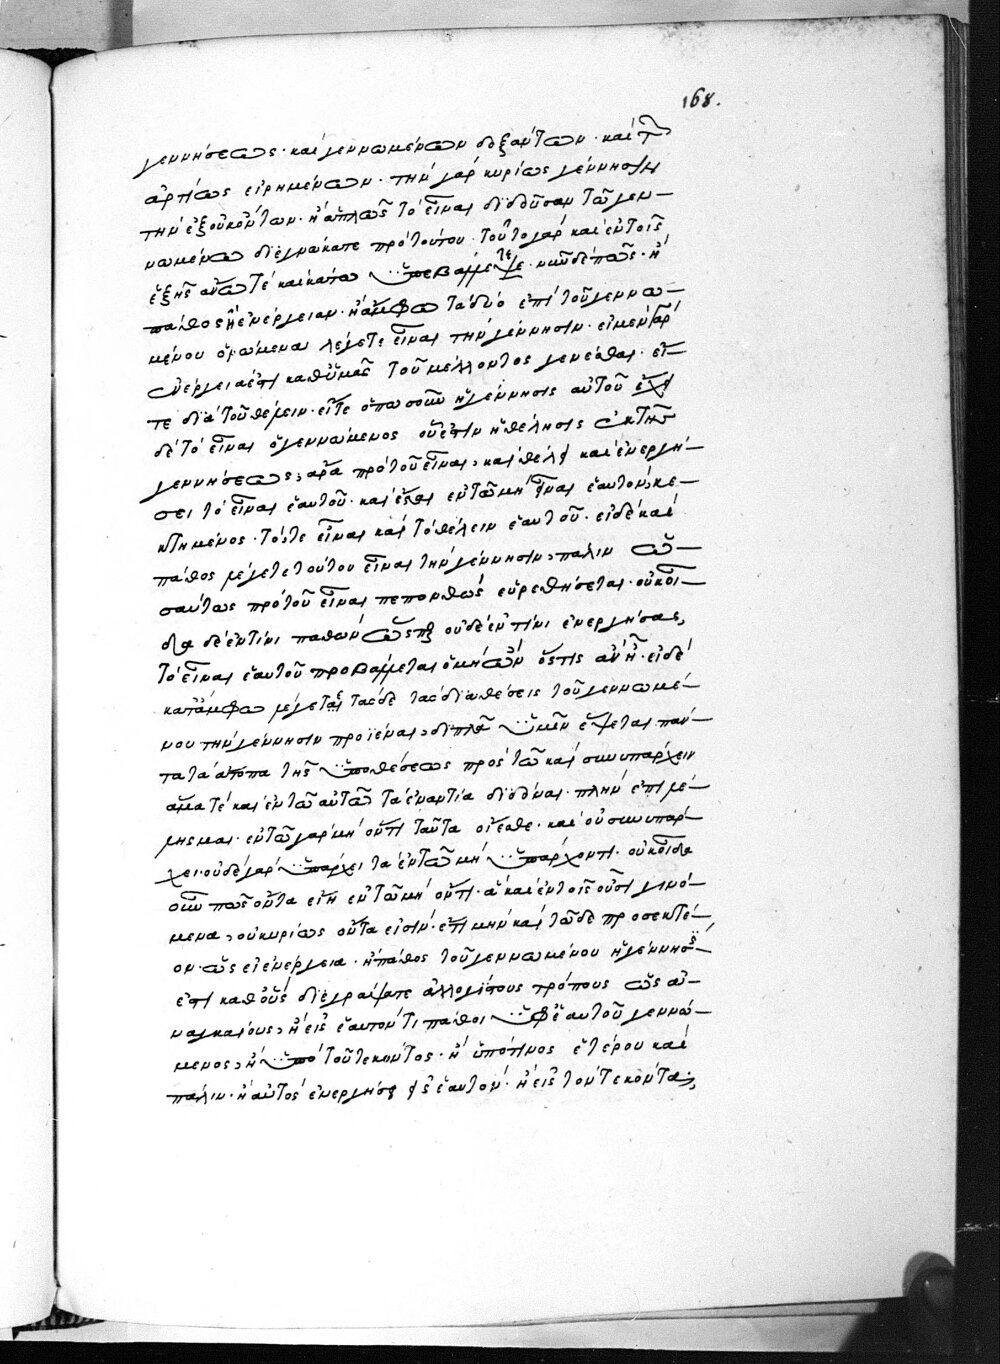 168.
γεννήσεως · καὶ γεννωμένων δεξάντων · καὶ τ
ἀρτίως εἰρημένων · τὴν γὰρ κυρίως γέννησιν
τὴν ἐξ οὐκ ὄντων · ἢ ἁπλῶς τὸ εἶναι διδοῦσαν τῶ γεν-
νωμένω διεγνώκατε πρὸ τούτου · τοῦτο γὰρ καὶ ἐν τοῖς
ἑξῆς ἄνω τὲ καὶ κάτω · νῦν δέ πως · ἢ
πάθος ἢ ἐνέργειαν · ἢ ἄμφω τὰ δύο ἐπὶ τοῦ γεννω-
μένου ὁρώμενα λέγετε εἶναι τὴν γέννησιν · εἰ μὲν γὰρ
ἐνέργειά ἐστι καθ' ὑμᾶς τοῦ μέλλοντος γενέσθαι · εἴ-
τε διὰ τοῦ θέλειν · εἴτε ὁπωσοῦν ἡ γέννησις αὐτοῦ ἔχει
δὲ τὸ εἶναι ὁ γεννώμενος οὔ ἐστιν ἡ θέλησις ἐκ τῆς
γεννήσεως, ἄρα πρὸ τοῦ εἶναι, καὶ θέλει καὶ ἐνεργή-
σει τὸ εἶναι ἑαυτοῦ · καὶ ἔσται ἐν τῶ μὴ εἶναι ἑαυτὸν κε-
κτημένος · τό, τε εἶναι καὶ τὸ θέλειν ἑαυτοῦ · εἰ δὲ καὶ
πάθος λέγετε τοῦτου εἶναι τὴν γέννησιν, πάλιν ὡ-
σαύτως πρὸ τοῦ εἶναι πεπονθὼς εὑρεθήσεται · οὐκ οἶ-
δα δὲ ἐν τίνι παθὼν ὥσπερ οὐδὲ ἐν τίνι ἐνεργήσας,
τὸ εἶναι ἑαυτοῦ προβάλλεται ὁ μὴ ὢν ὅστις ἂν ἦ · εἰ δὲ
κατάμφω λέγετε τάσδε τὰς διαθέσεις τοῦ γεννωμέ-
νου τὴν γέννησιν προϊέναι, διπλᾶ ὑμῖν ἕψεται πάν-
τα τὰ ἄτοπα τῆς ὑποθέσεως πρὸς τῶ καὶ συνυπάρχειν
ἅμα τὲ καὶ ἐν τῶ αὐτῶ τὰ ἐναντία διδόναι · πλὴν ἐπιλέ-
λησμαι · ἐν τῶ γὰρ μὴ ὄντι ταῦτα οἴεσθε · καὶ οὐ συνυπάρ-
χει · οὐδὲ γὰρ ὑπάρχει τὰ ἐν τῶ μὴ ὑπάρχοντι · οὐκ οἶδα
οὖν πῶς ὄντα εἴη ἐν τῶ μὴ ὄντι · ἃ καὶ ἐν τοῖς οὖσι γινό-
μενα, οὐ κυρίως ὄντα εἰσίν · ἔτι μὴν καὶ τῶδε προσεκτέ-
ον · ὡς εἰ ἐνέργεια · ἢ πάθος τοῦ γεννωμένου ἡ γέννησίς
ἐστι καθ' οὓς διεγράψατε ἀλλογίστους τρόπους ὡς ἀ-
ναγκαίους, ἢ εἰς ἑαυτόν τι πάθοι ὑφ' ἑαυτοῦ γεννώ-
μενος, ἢ ὑπὸ τοῦ τεκόντος · ἢ ὑπό τινος ἑτέρου καὶ
πάλιν · ἢ αὐτὸς ἐνεργήσει εἰς ἑαυτόν · ἢ εἰς τὸν τεκόντα,